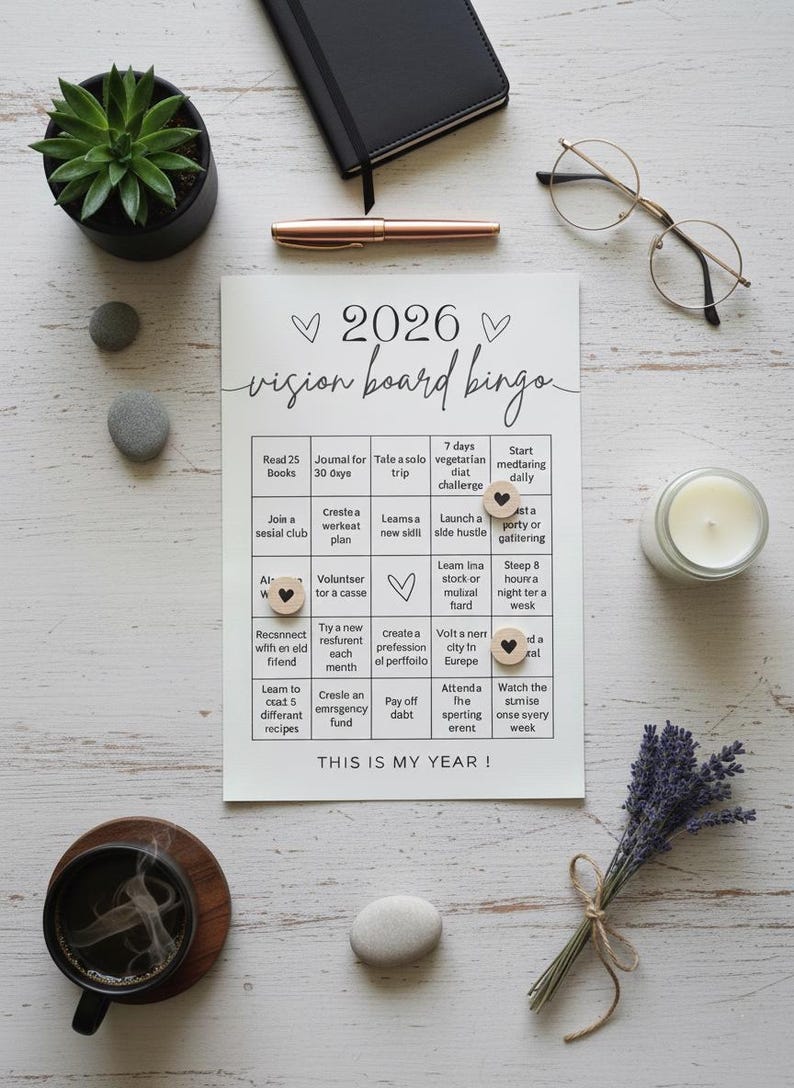 2026
vision board bingo
Read 25
Books
Joumal for
30 days
Tale a solo
trip
7 days
vegetarian
diat
challerge
Start
medtaring
dally
Join a
sesial club
Create a
werkeat
plan
Leams a
new sidll
Launch a
slde hustle
porty or
gatitering
Volunteer
tor a casse
Leam lna
stock or
mulixal
fiard
Steep 8
houra a
night ter a
wesk
Recsnnect
wifh en eld
fifend
Ty a new
resfurent
each
month
create a
prefession
el perffolio
Volt a nerr
city in
Eurepe
Learn to
coat 5
different
recipes
Cresle an
emrsgency
fund
Pay off
dabt
Attend a
fhe
sperting
erent
Watch the
sumise
onse syery
week
THIS IS MY YEAR !